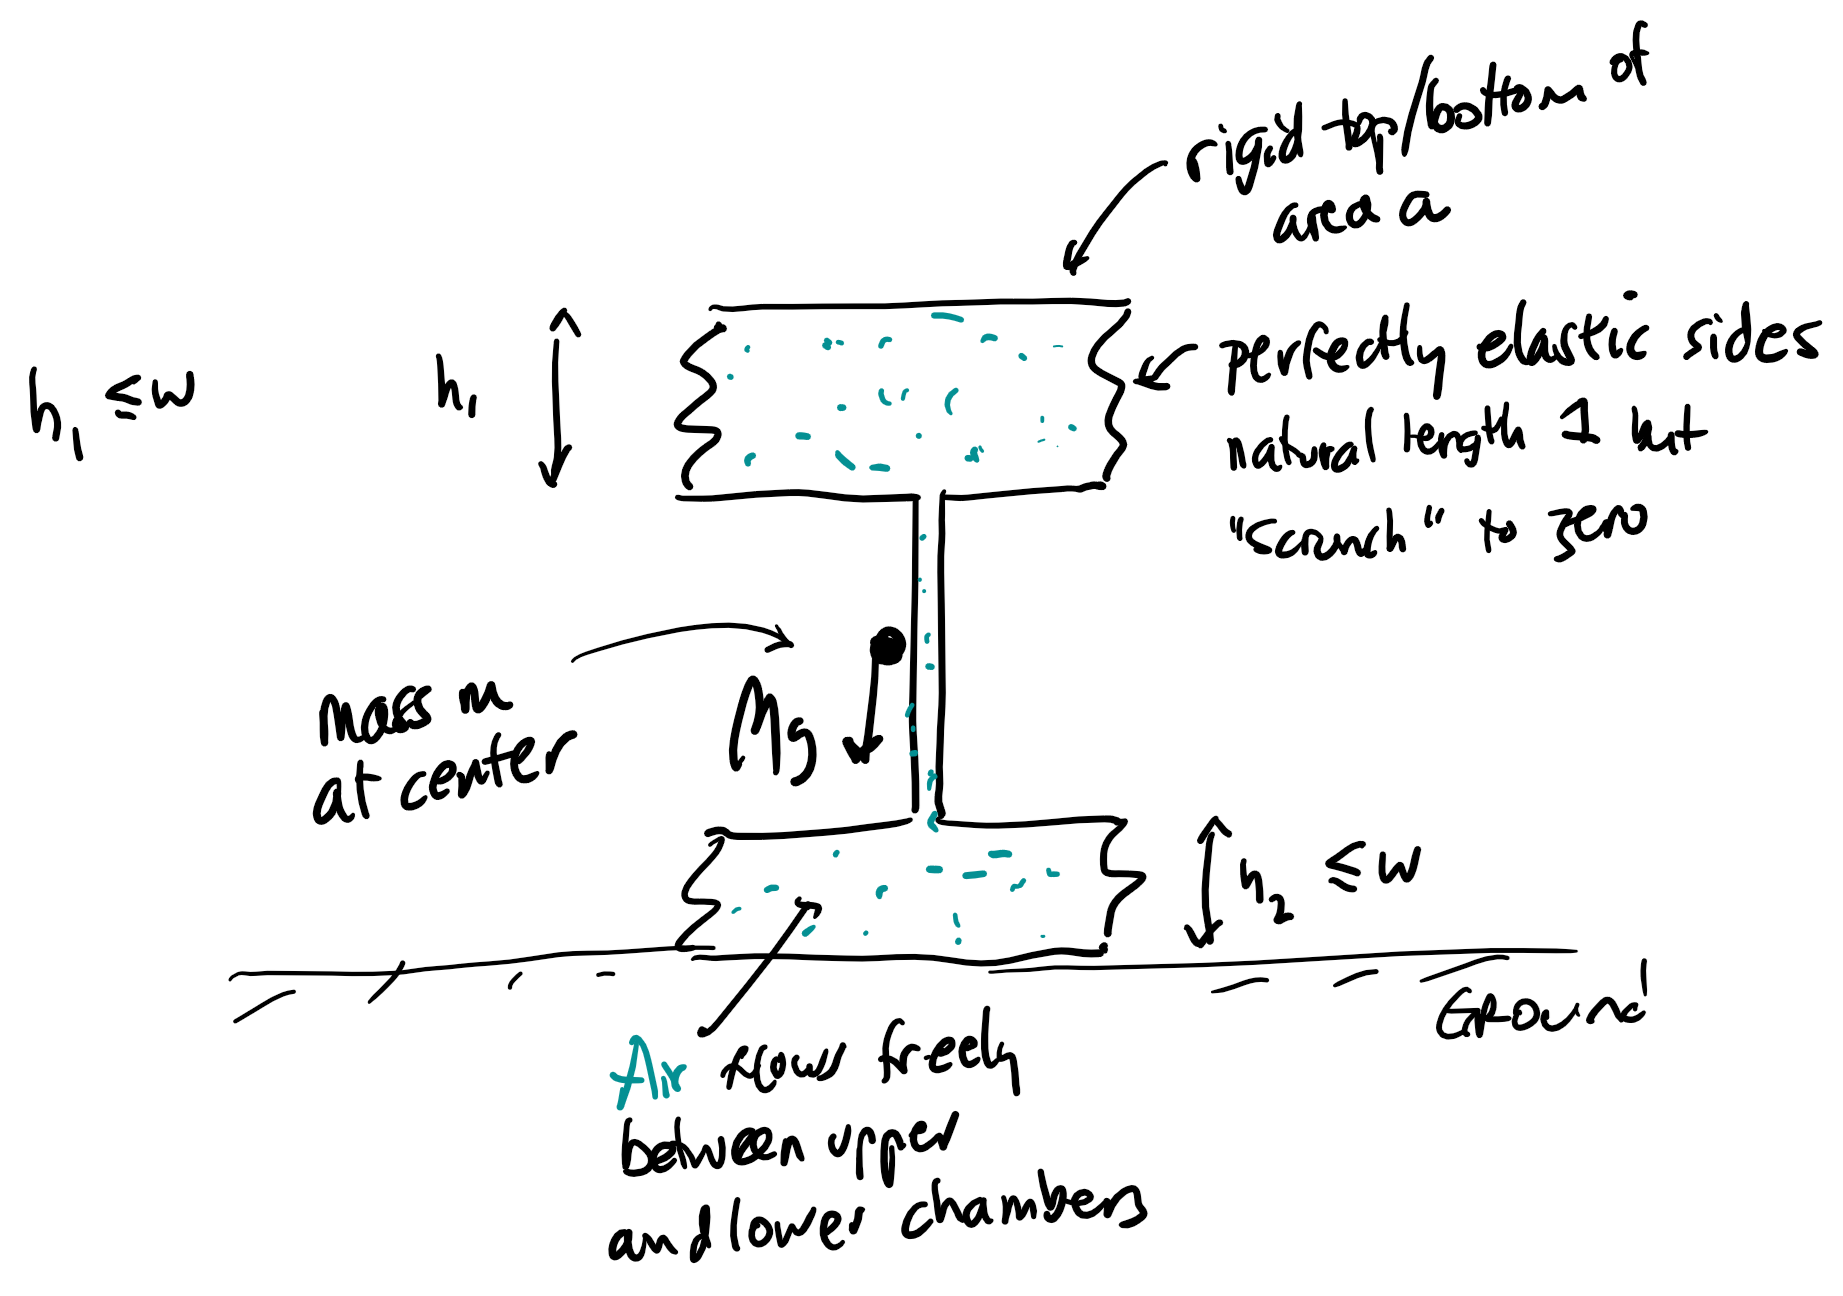 rigid top/bottom of
area a
h₁ ≤ w
h₁
perfectly elastic sides
natural length 1 but
"scrunch" to zero
mass m
at center
Mg
h₂ ≤ w
GROUND
Air flows freely
between upper
and lower chambers